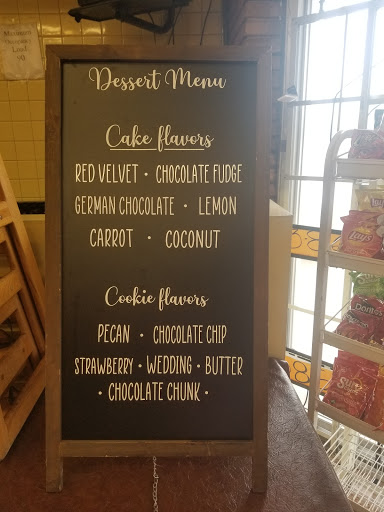 Maximum
Occupancy
Dessert Menu
Cake flavors
RED VELVET • CHOCOLATE FUDGE
GERMAN CHOCOLATE • LEMON
CARROT • COCONUT
Cookie flavors
PECAN • CHOCOLATE CHIP
STRAWBERRY • WEDDING • BUTTER
• CHOCOLATE CHUNK •
Lay's
Doritos